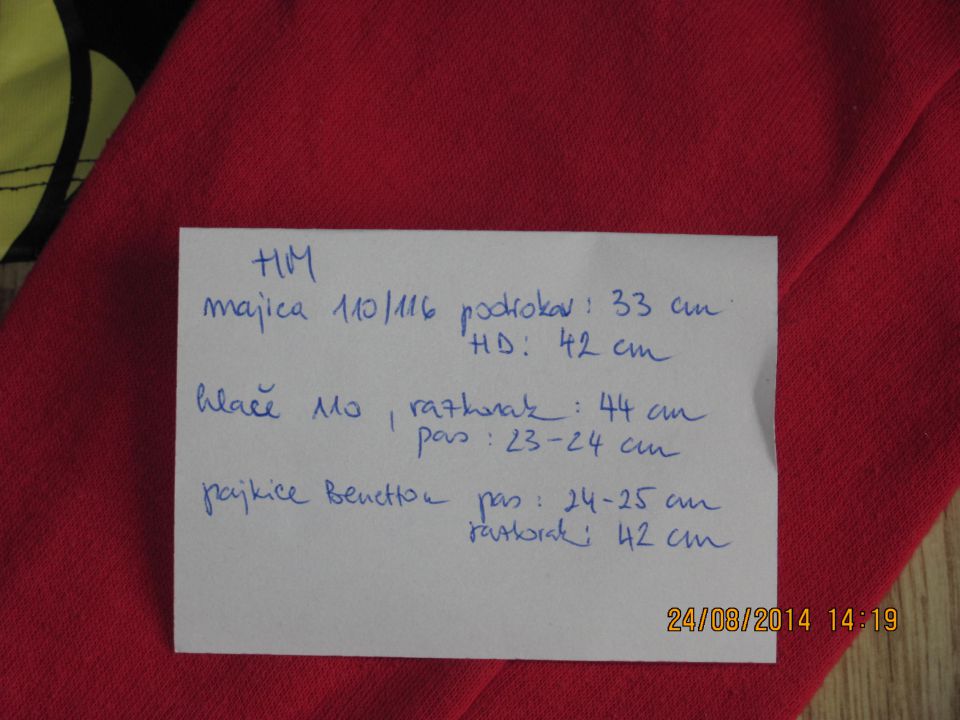 HM
majica 110/116 podrokav: 33 cm
HD: 42 cm
hlače 110, razkorak: 44 cm
pas: 23-24 cm
pajkice Benetton pas: 24-25 cm
razkorak: 42 cm
24/08/2014 14:19